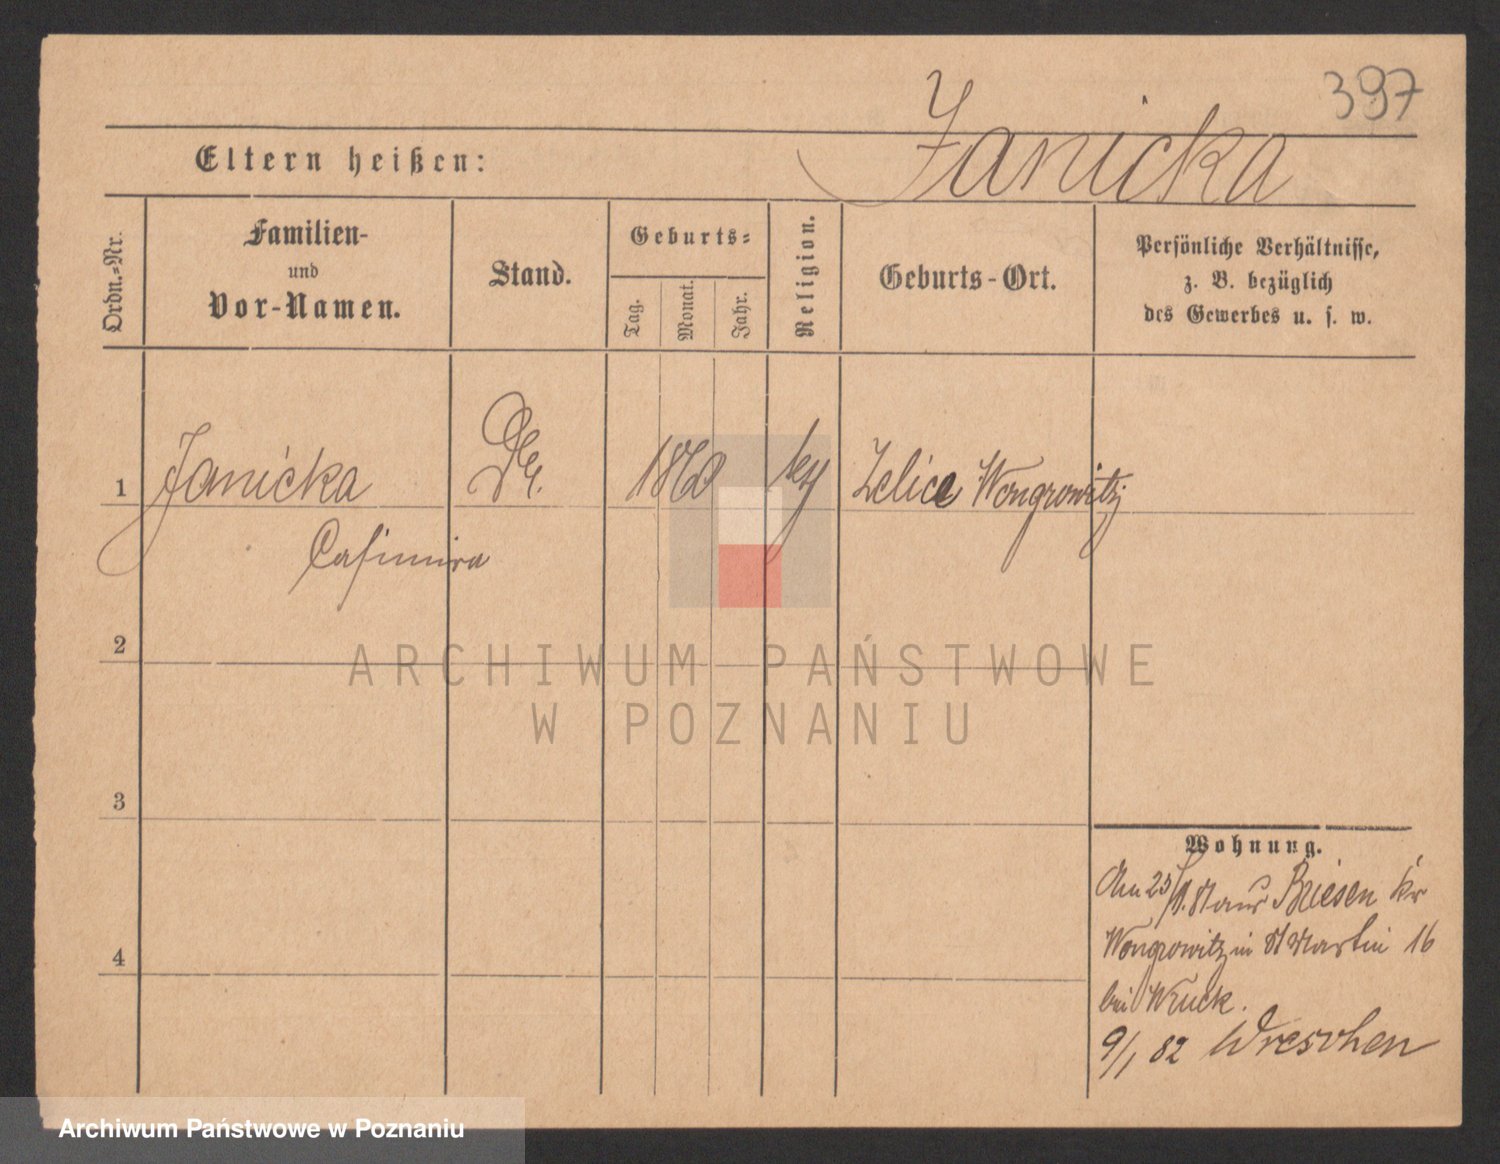 397
Janicka
Eltern heißen:
Ordn.-Nr.
Familien-
und
Vor-Namen.
Stand.
Geburts-
Tag.
Monat.
Jahr.
Religion.
Geburts-Ort.
Persönliche Verhältnisse,
z. B. bezüglich
des Gewerbes u. s. w.
1 Janicka 1860 Zelice Wongrowitz
Casimira
2
ARCHIWUM PAŃSTWOWE
W POZNANIU
3
Wohnung.
aus Briesen Kr
4
Wongrowitz in St Martin 16
bei Wruck.
9/1 82 Wreschen
Archiwum Państwowe w Poznaniu